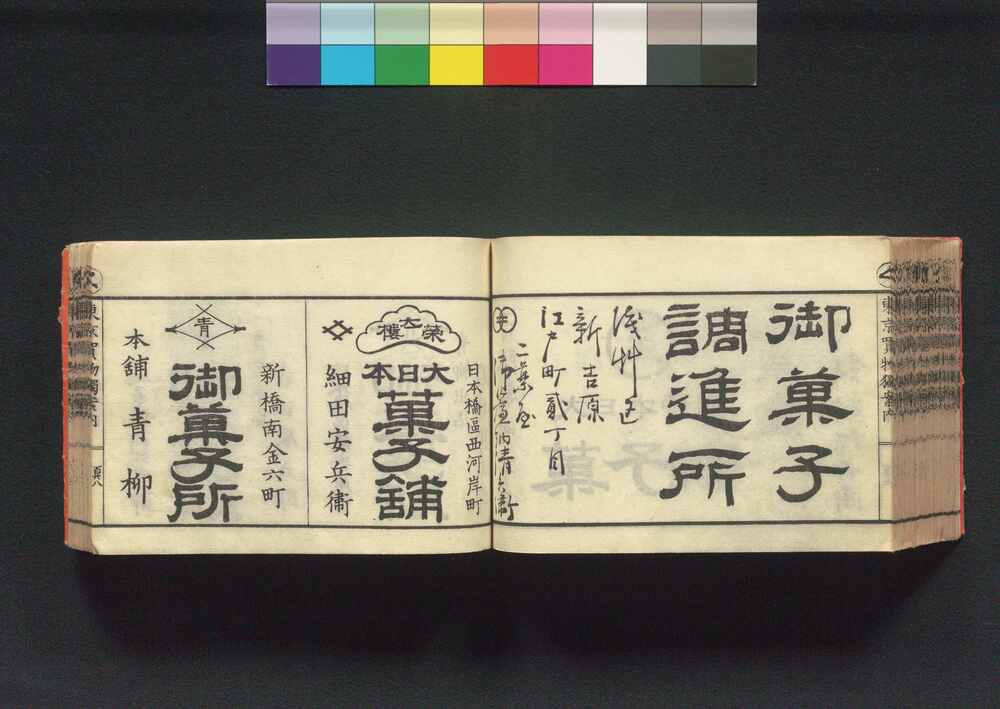 御菓子
調進所
浅艸区
新吉原
江戸町貳丁目
二葉屋
日本橋區西河岸町
榮太樓
大日本
菓子舖
細田安兵衞
新橋南金六町
青
御菓子所
本舖 青柳
東京買物獨案内